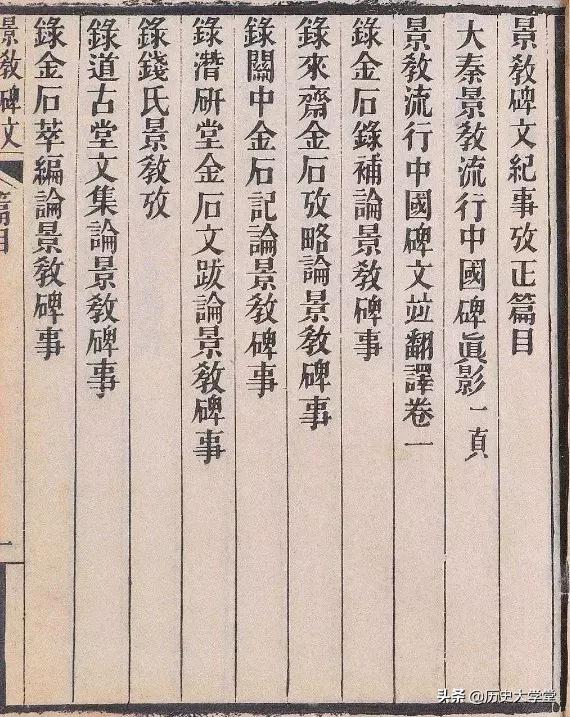 景敎碑文紀事攷正篇目
大秦景敎流行中國碑眞影一頁
景敎流行中國碑文竝翻譯卷一
錄金石錄補論景敎碑事
錄來齋金石攷略論景敎碑事
錄關中金石記論景敎碑事
錄潛研堂金石文跋論景敎碑事
錄錢氏景敎攷
錄道古堂文集論景敎碑事
錄金石萃編論景敎碑事
景敎碑文
篇目
一
头条 @历史大学堂